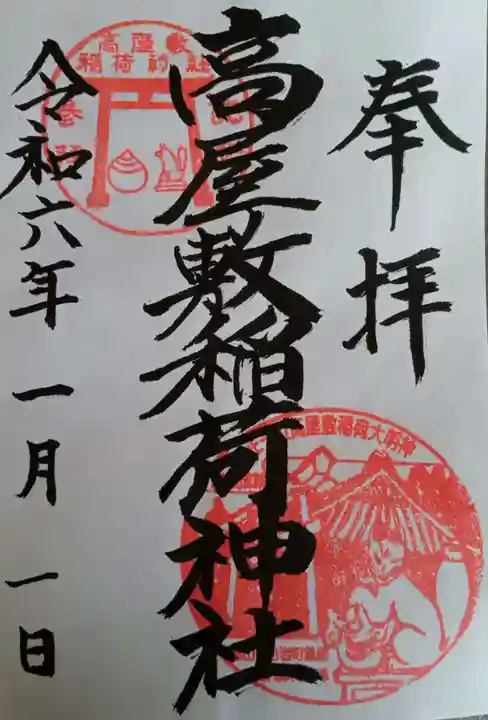 奉拝
高屋敷稲荷神社
令和六年一月一日
高屋敷
稲荷神社
高屋敷稲荷大明神